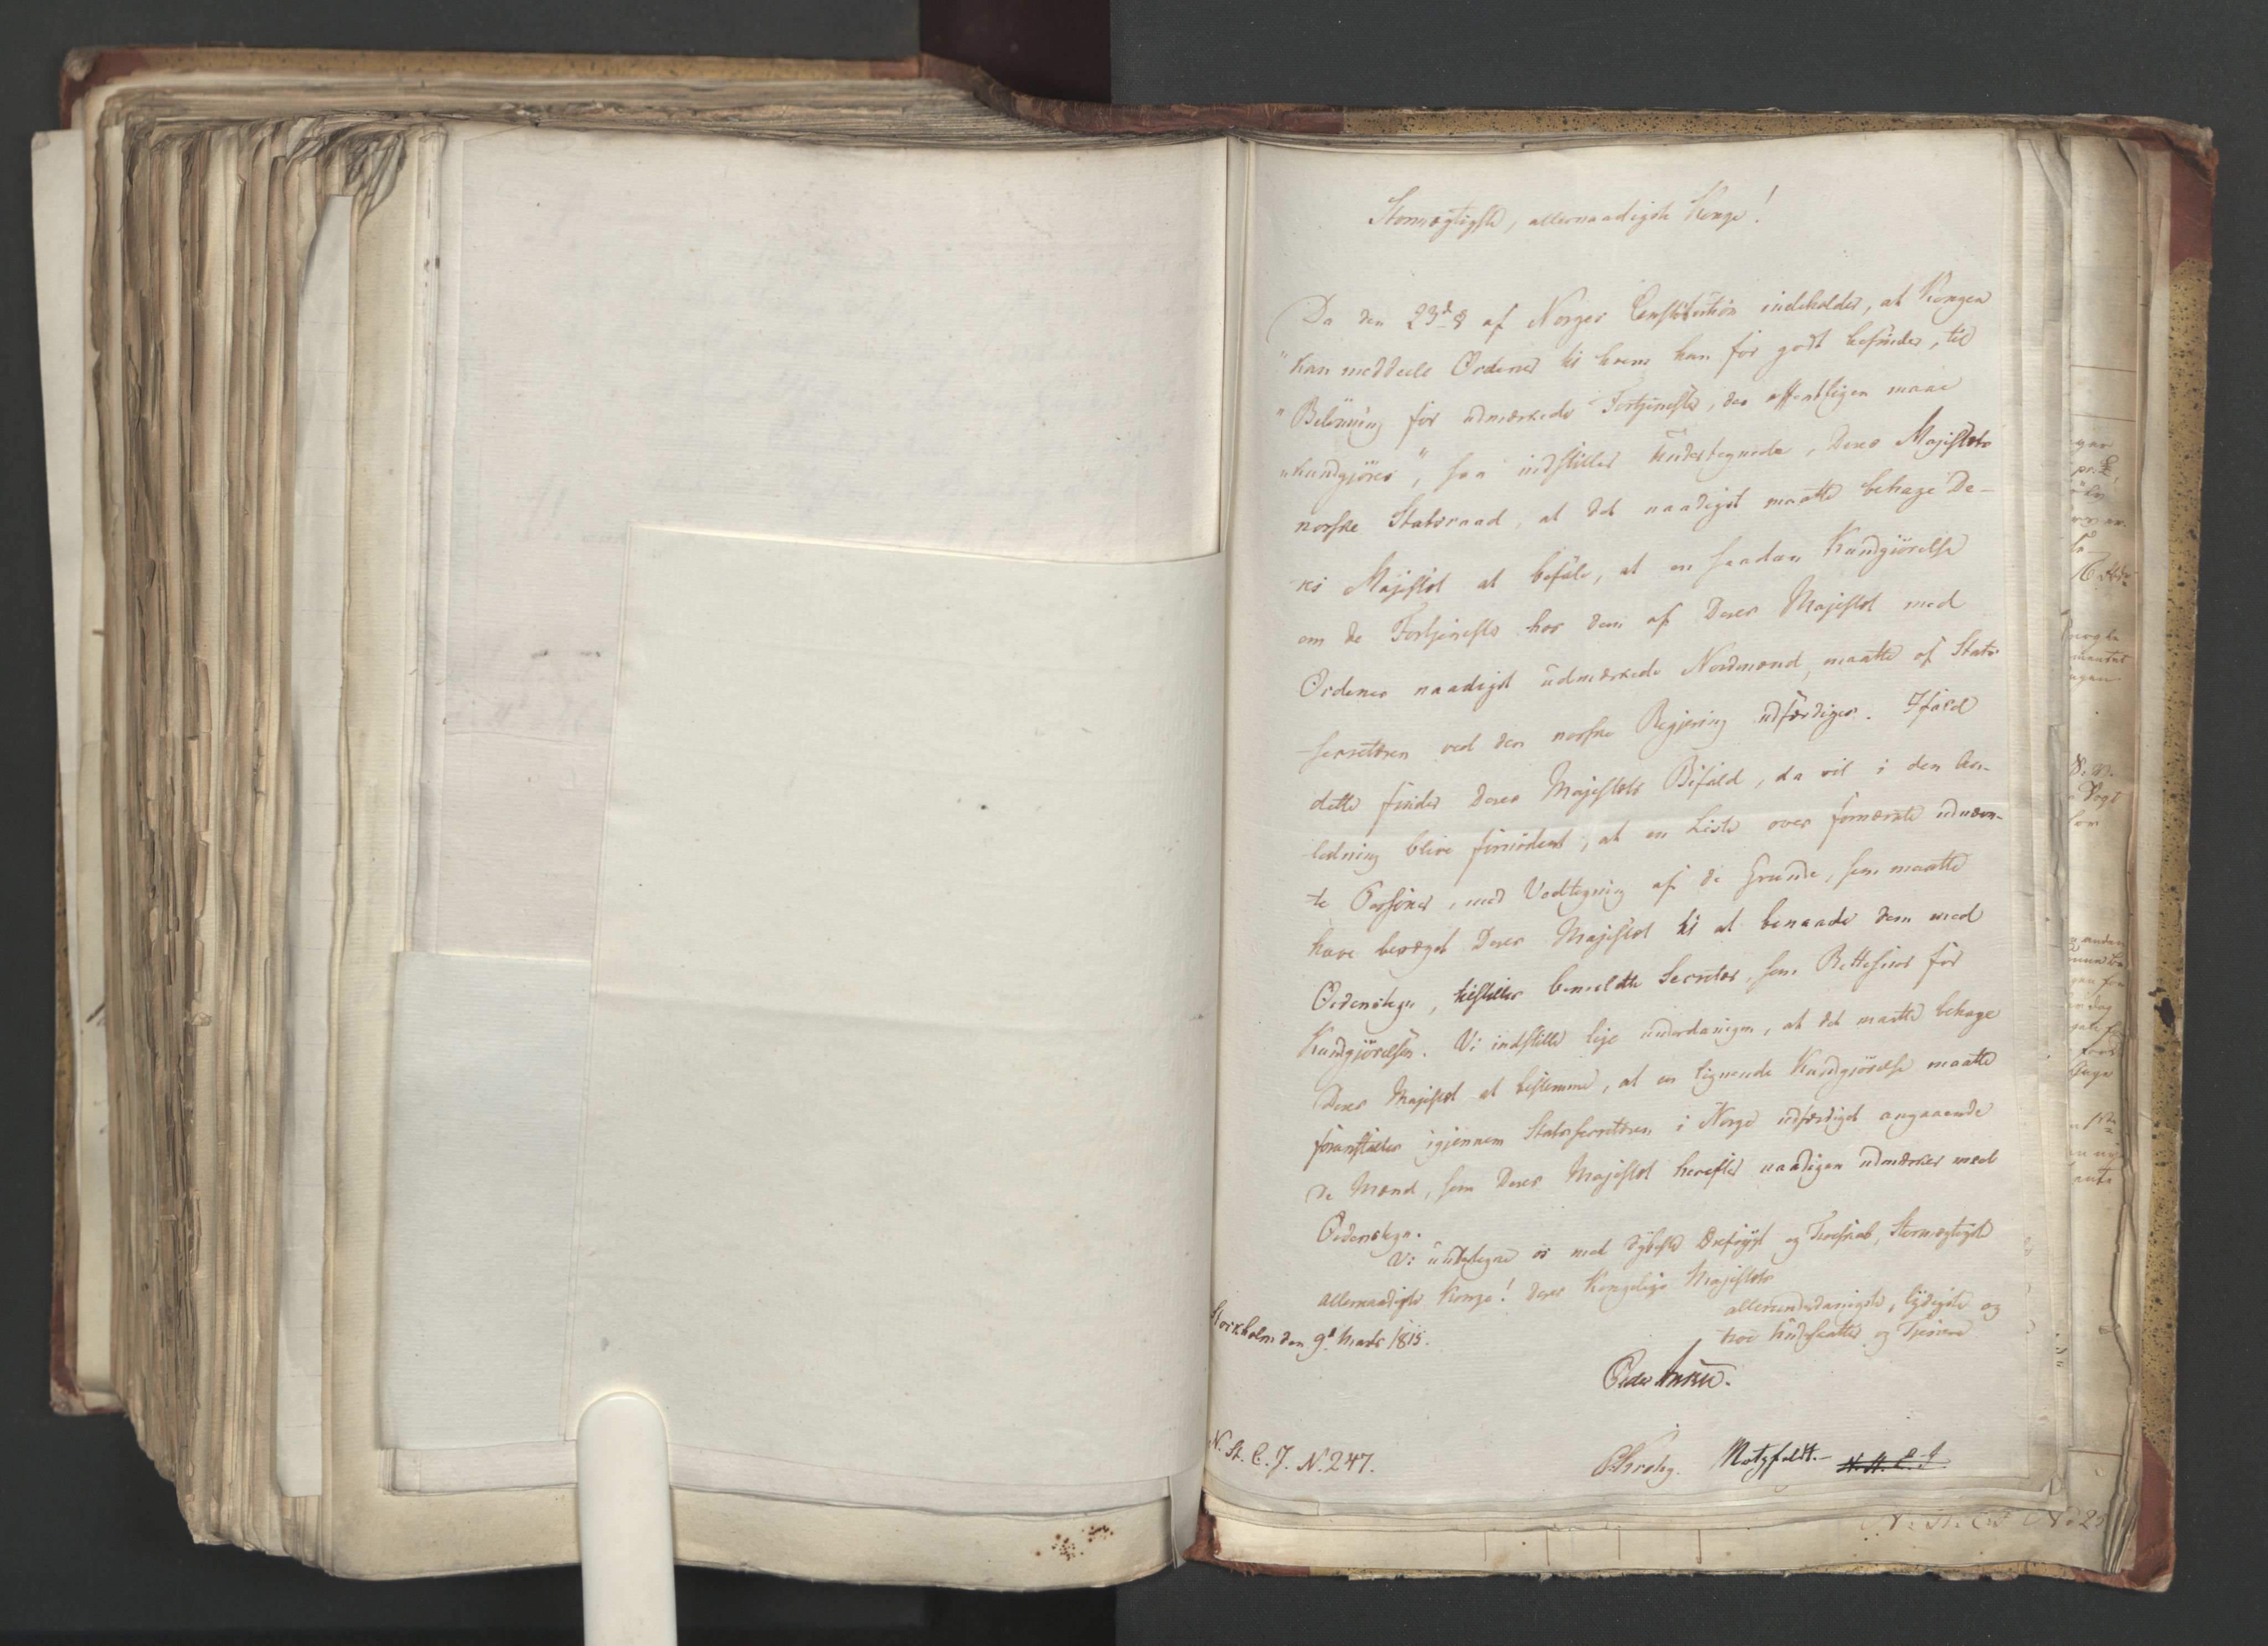 Stormægtigste, allernaadigste Konge!
Da den 23d § af Norges Constitution indeholder, at Kongen
"kan meddeele Ordener til hvem han for godt befinder, til
"Belönning for udmærkede Fortjenester, der offentligen maae
"kundgjöres", saa indstiller undertegnede, Deres Majestæts
norske Statsraad, at det naadigst maatte behage De-
res Majestæt at befale, at en saadan Kundgjörelse
om de Fortjenester hos dem af Deres Majestæt med
Ordener naadigst udmærkede Nordmænd, maatte af Stats
secretæren ved den norske Regjering udfærdiges. Ifald
dette finder Deres Majestæts Bifald, da vil i den An-
ledning blive fornödent, at en Liste over fornævnte udnævn-
te Personer, med Vedtegning af de Grunde, som maatte
have bevæget Deres Majestæt til at benaade dem med
Ordenstegn, tilstilles bemeldte Secretær, som Rettesnor for
Kundgjörelsen. Vi indstille lige underdanigen, at det maatte behage
Deres Majestæt at bestemme, at en lignende Kundgjörelse maatte
foranstaltes igjennem Statssecretæren i Norge udfærdiget angaaende
de Mænd, som Deres Majestæt herefter naadigen udmærker med
Ordenstegn.
Vi undertegne os med dybeste Ærefrygt og Troeskab, Stormægtigste
Allernaadigste Konge! Deres Kongelige Majestæts
allerunderdanigste, lydigste og
troe Undersaatter og Tjenere
Stockholm den 9d Marts 1815.
Peder Anker.
N. St. C. J. N. 247.
C. Krohg. Motzfeldt.- N. St. C. J
N. St. C. J N. 25